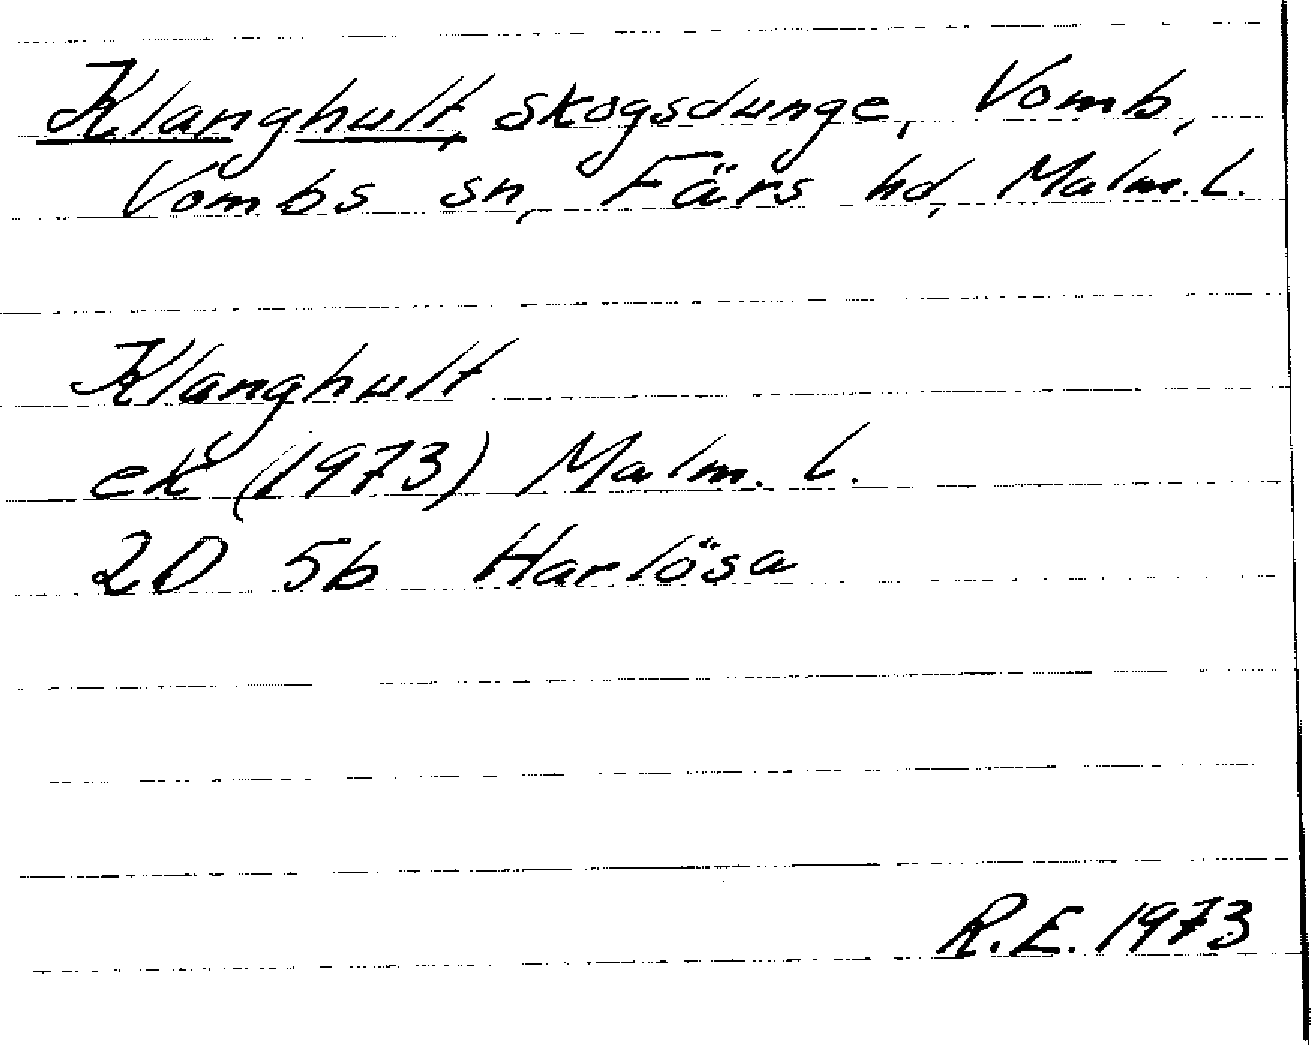 Klanghult, skogsdunge, Vomb,
Vombs sn, Färs hd, Malm. L.
Klanghult
ek (1973) Malm. L.
2D 5b Harlösa
R.E. 1973